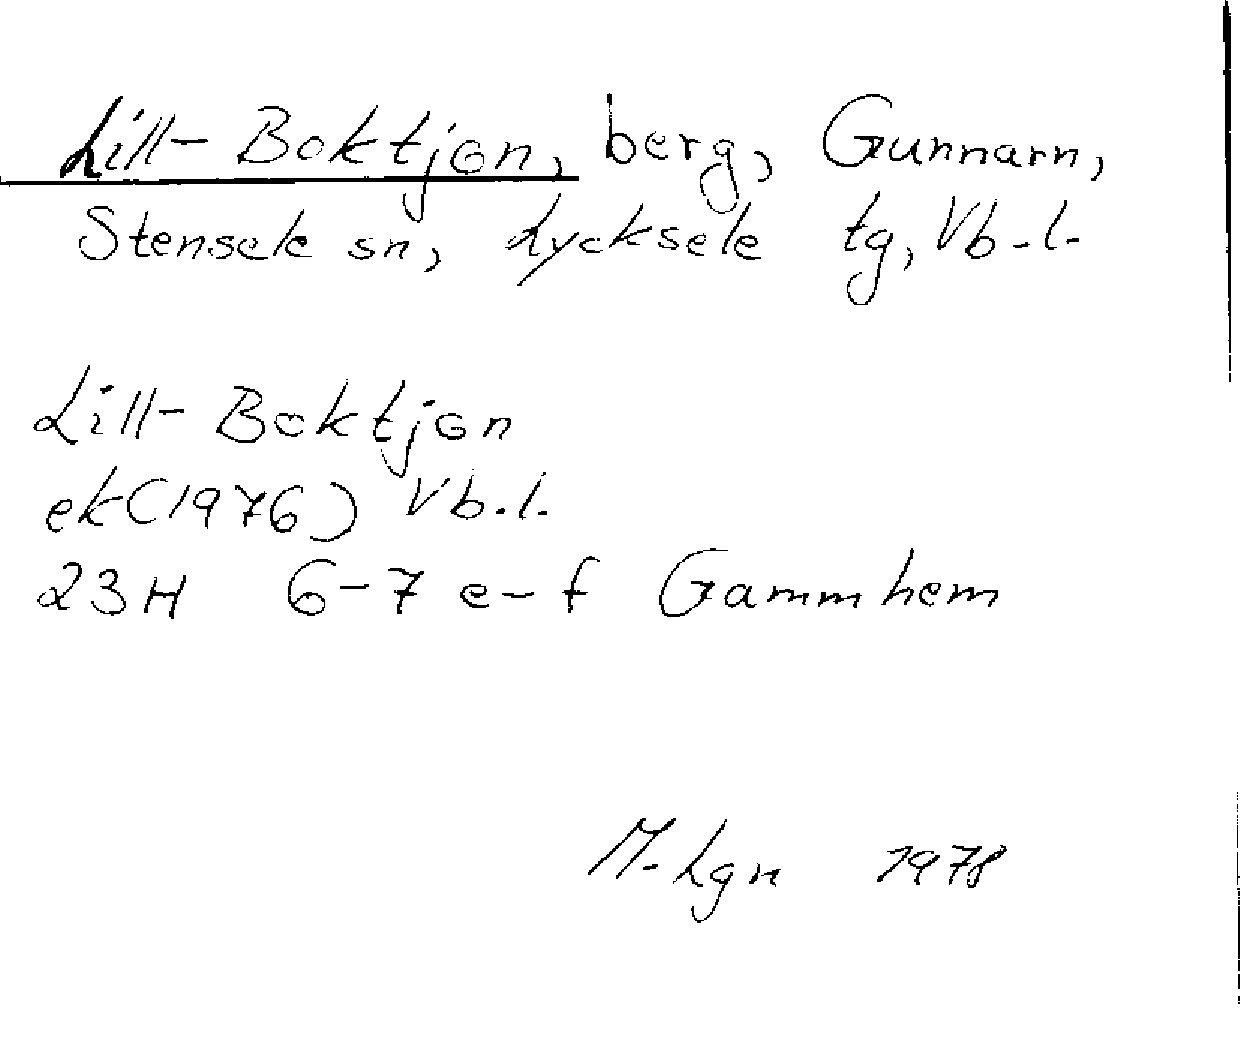 Lill-Boktjon, berg, Gunnarn,
Stensele sn, Lycksele tg, Vb.l.
Lill-Boktjon
ek(1976) Vb.l.
23H 6-7 e-f Gammhem
M-Lgn 1978